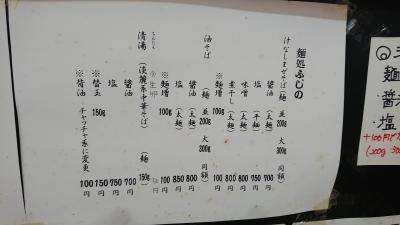 麺処ふじの
汁なしまぜそば(麺 並200g 大300g 同額)
醤油 700円
塩 (平麺) 750円
味噌 (太麺) 800円
煮干し (太麺) 800円
※麺増 100g 100円
油そば (麺 並200g 大300g 同額)
醤油 (太麺) 800円
塩 (太麺) 850円
※麺増 100g 100円
清湯 (淡麗系中華そば) (麺 150g)
醤油 700円
塩 750円
※替玉 150g 150円
※背油 チャッチャ系に変更 100円
麺
醤
塩
+100円